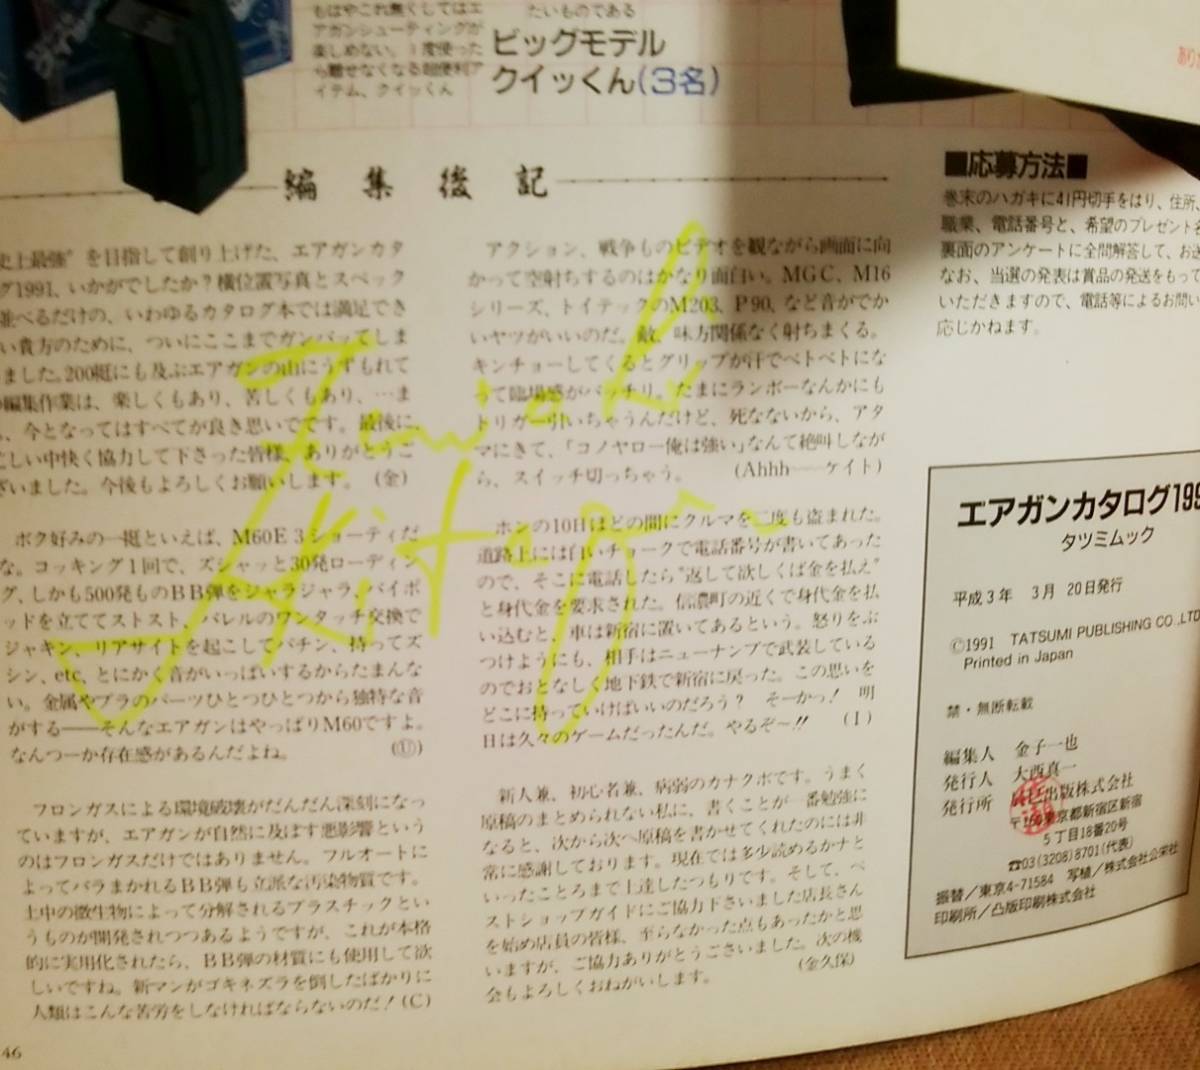 もはやこれ無くしてはエ
アガンシューティングが
楽しめない。1度使った
ら離せなくなる超便利ア
イテム、クイッくん
たいものである
ビッグモデル
クイッくん(3名)
編集後記
史上最強"を目指して創り上げた、エアガンカタ
グ1991、いかがでしたか?横位置写真とスペック
並べるだけの、いわゆるカタログ本では満足でき
い貴方のために、ついにここまでガンバッてしま
ました。200艇にも及ぶエアガンの山にうずもれて
編集作業は、楽しくもあり、苦しくもあり、…ま
、今となってはすべてが良き思いでです。最後に、
忙しい中快く協力して下さった皆様、ありがとうご
ざいました。今後もよろしくお願いします。(金)
ボク好みの一挺といえば、M60E3ショーティだ
な。コッキング1回で、ズシャッと30発ローディン
グ、しかも500発ものBB弾をジャラジャラ、バイポ
ッドを立ててストスト、バレルのワンタッチ交換で
ジャキン、リアサイトを起こしてパチン、持ってズ
シン、etc、とにかく音がいっぱいするからたまんな
い。金属やプラのパーツひとつひとつから独特な音
がする――そんなエアガンはやっぱりM60ですよ。
なんつーか存在感があるんだよね。
フロンガスによる環境破壊がだんだん深刻になっ
ていますが、エアガンが自然に及ぼす悪影響という
のはフロンガスだけではありません。フルオートに
よってバラまかれるBB弾も立派な汚染物質です。
土中の微生物によって分解されるプラスチックとい
うものが開発されつつあるようですが、これが本格
的に実用化されたら、BB弾の材質にも使用して欲
しいですね。新マンがゴキネズラを倒したばかりに
人類はこんな苦労をしなければならないのだ!(C)
アクション、戦争ものビデオを観ながら画面に向
かって空射ちするのはかなり面白い。MGC、M16
シリーズ、トイテックのM203、P90、など音がでか
いヤツがいいのだ。敵、味方関係なく射ちまくる。
キンチョーしてくるとグリップが汗でベトベトにな
って臨場感がバッチリ。たまにランボーなんかにも
トリガー引いちゃうんだけど、死なないから、アタ
マにきて、「コノヤロー俺は強い」なんて絶叫しなが
ら、スイッチ切っちゃう。(Ahhh〜〜ケイト)
ホンの10日ほどの間にクルマを二度も盗まれた。
道路上には白いチョークで電話番号が書いてあった
ので、そこに電話したら"返して欲しくば金を払え"
と身代金を要求された。信濃町の近くで身代金を払
い込むと、車は新宿に置いてあるという。怒りをぶ
つけようにも、相手はニューナンブで武装している
のでおとなしく地下鉄で新宿に戻った。この思いを
どこに持っていけばいいのだろう? そーかっ! 明
日は久々のゲームだったんだ。やるぞ〜!! (I)
新人兼、初心者兼、病弱のカナクボです。うまく
原稿のまとめられない私に、書くことが一番勉強に
なると、次から次へ原稿を書かせてくれたのには非
常に感謝しております。現在では多少読めるかナと
いったことろまで上達したつもりです。そして、ベ
ストショップガイドにご協力下さいました店長さん
を始め店員の皆様、至らなかった点もあったかと思
いますが、ご協力ありがとうございました。次の機
会もよろしくおねがいします。(金久保)
■応募方法■
巻末のハガキに41円切手をはり、住所、
職業、電話番号と、希望のプレゼント名
裏面のアンケートに全問解答して、お送
なお、当選の発表は賞品の発送をもって
いただきますので、電話等によるお問い
応じかねます。
エアガンカタログ199
タツミムック
平成3年 3月 20日発行
©1991 TATSUMI PUBLISHING CO.,LTD
Printed in Japan
禁・無断転載
編集人 金子一也
発行人 大西真一
発行所 辰巳出版株式会社
〒160東京都新宿区新宿
5丁目18番20号
☎03(3208)8701(代表)
振替/東京4-71584 写植/株式会社公栄社
印刷所/凸版印刷株式会社
46